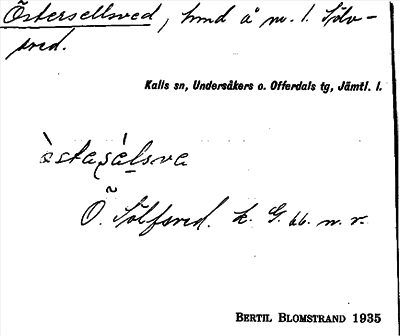 Östersellsved, hmd å m. l. Sölv-
sved.
Kalls sn, Undersåkers o. Offerdals tg, Jämtl. l.
Ö. Sölfsved. k. G. bb. n. v.
BERTIL BLOMSTRAND 1935